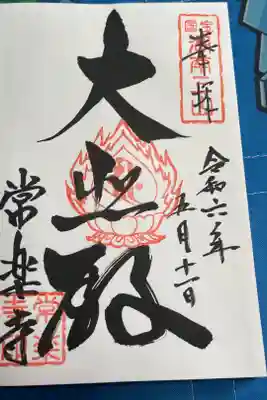 奉拝
令和六年
五月十一日
大悲殿
常楽寺